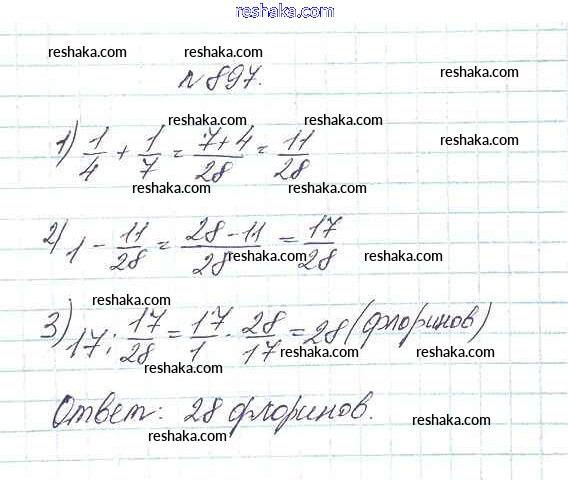 reshaka.com
reshaka.com reshaka.com
№ 897.
reshaka.com
reshaka.com reshaka.com
1) 1/4 + 1/7 = 7+4/28 = 11/28
reshaka.com reshaka.com
2) 1 - 11/28 = 28-11/28 = 17/28
reshaka.com reshaka.com
reshaka.com
3) 17 : 17/28 = 17/1 · 28/17 = 28 (флоринов)
reshaka.com reshaka.com
reshaka.com
Ответ: 28 флоринов.
reshaka.com
reshaka.com
reshaka.com